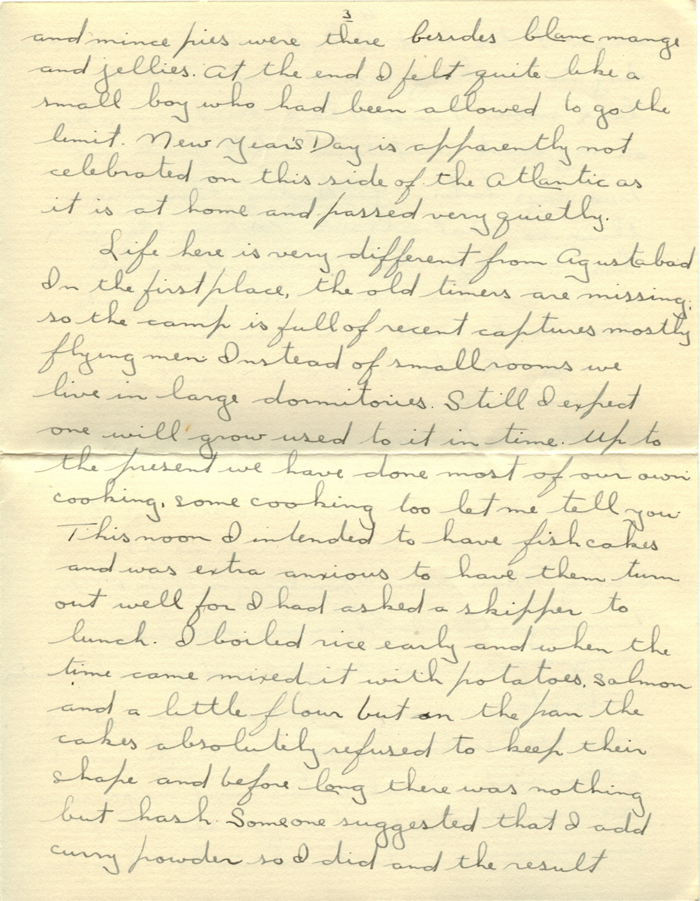 3
and mince pies were there besides blanc mange
and jellies. At the end I felt quite like a
small boy who had been allowed to go the
limit. New Year's Day is apparently not
celebrated on this side of the Atlantic as
it is at home and passed very quietly.
Life here is very different from Agustabad
In the first place, the old timers are missing,
so the camp is full of recent captures mostly
flying men Instead of small rooms we
live in large dormitories. Still I expect
one will grow used to it in time. Up to
the present we have done most of our own
cooking, some cooking too let me tell you
This noon I intended to have fishcakes
and was extra anxious to have them turn
out well for I had asked a skipper to
lunch. I boiled rice early and when the
time came mixed it with potatoes, salmon
and a little flour but on the pan the
cakes absolutely refused to keep their
shape and before long there was nothing
but hash. Someone suggested that I add
curry powder so I did and the result